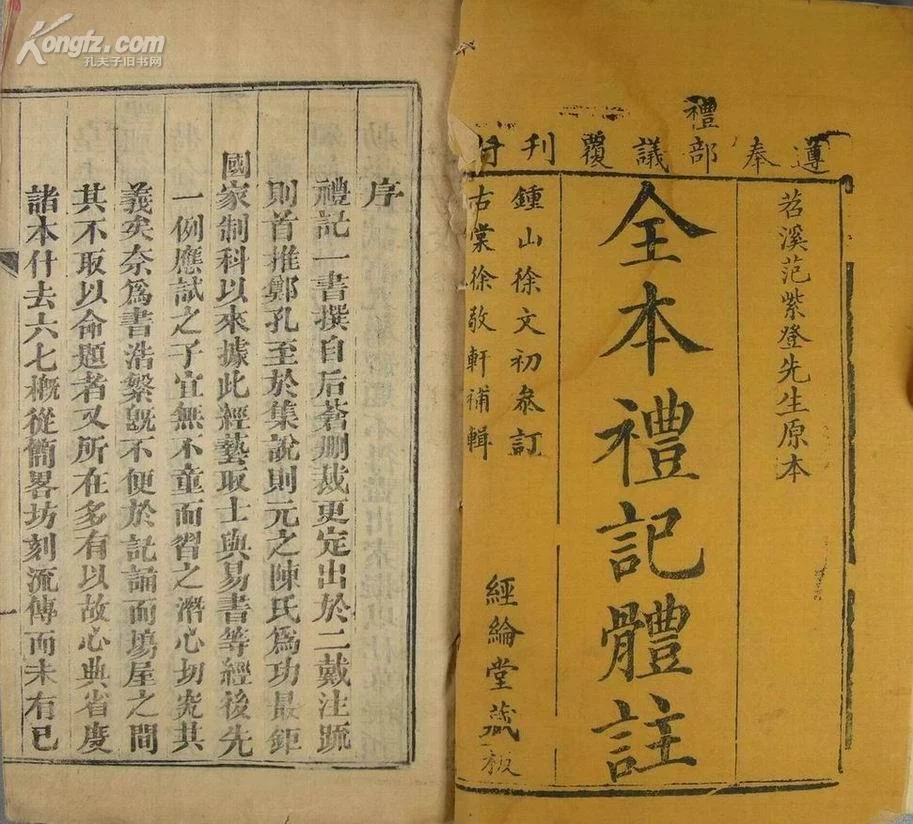 Kongfz.com
孔夫子旧书网
遵奉禮部議覆刊行
苕溪范紫登先生原本
全本禮記體註
鍾山徐文初叅訂
古棠徐敬軒補輯
經綸堂藏板
序
禮記一書撰自后蒼刪裁更定出於二戴注疏
則首推鄭孔至於集說則元之陳氏爲功最鉅
國家制科以來據此經藝取士與易書等經後先
一例應試之子宜無不童而習之濳心切究其
義矣奈爲書浩繁旣不便於記誦而塲屋之間
其不取以命題者又所在多有以故心典省度
諸本什去六七槪從簡畧坊刻流傳而未有已